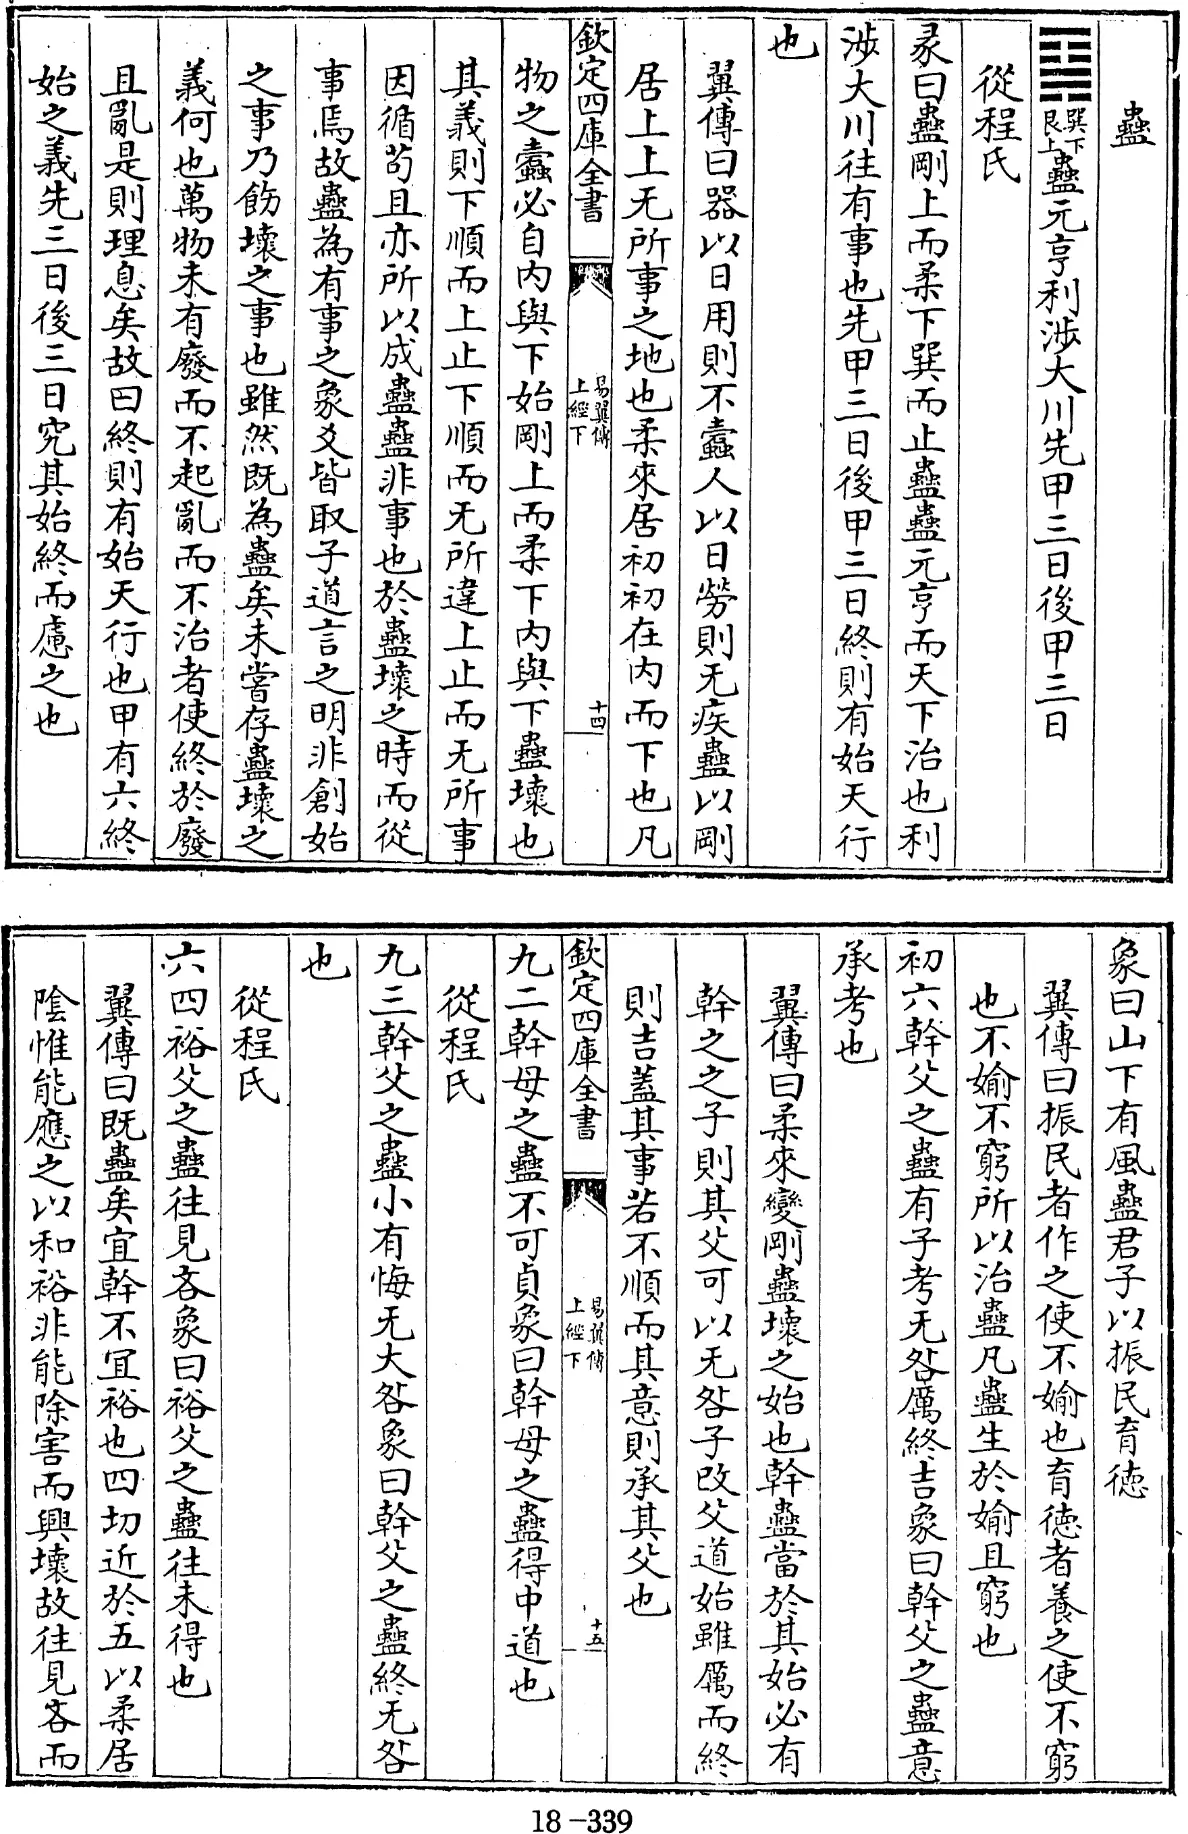 蠱
䷑巽下艮上蠱元亨利涉大川先甲三日後甲三日
從程氏
彖曰蠱剛上而柔下巽而止蠱蠱元亨而天下治也利
涉大川往有事也先甲三日後甲三日終則有始天行
也
翼傳曰器以日用則不蠹人以日勞則无疾蠱以剛
居上上无所事之地也柔來居初初在内而下也凡
欽定四庫全書
易翼傳
上經下
十四
物之蠹必自内與下始剛上而柔下内與下蠱壞也
其義則下順而上止下順而无所違上止而无所事
因循苟且亦所以成蠱蠱非事也於蠱壞之時而從
事焉故蠱為有事之象爻皆取子道言之明非創始
之事乃飭壞之事也雖然既為蠱矣未嘗存蠱壞之
義何也萬物未有廢而不起亂而不治者使終於廢
且亂是則理息矣故曰終則有始天行也甲有六終
始之義先三日後三日究其始終而慮之也
象曰山下有風蠱君子以振民育徳
翼傳曰振民者作之使不媮也育徳者養之使不窮
也不媮不窮所以治蠱凡蠱生於媮且窮也
初六幹父之蠱有子考无咎厲終吉象曰幹父之蠱意
承考也
翼傳曰柔來變剛蠱壞之始也幹蠱當於其始必有
幹之之子則其父可以无咎子改父道始雖厲而終
則吉蓋其事若不順而其意則承其父也
欽定四庫全書
易翼傳
上經下
十五
九二幹母之蠱不可貞象曰幹母之蠱得中道也
從程氏
九三幹父之蠱小有悔无大咎象曰幹父之蠱終无咎
也
從程氏
六四裕父之蠱往見吝象曰裕父之蠱往未得也
翼傳曰既蠱矣宜幹不宜裕也四切近於五以柔居
陰惟能應之以和裕非能除害而興壞故往見吝而
18-339